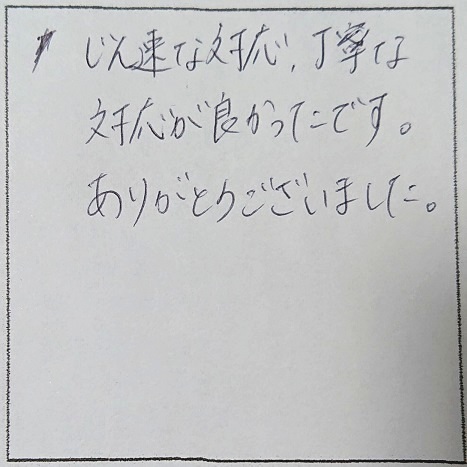 じん速な対応、丁寧な
対応が良かったです。
ありがとうございました。